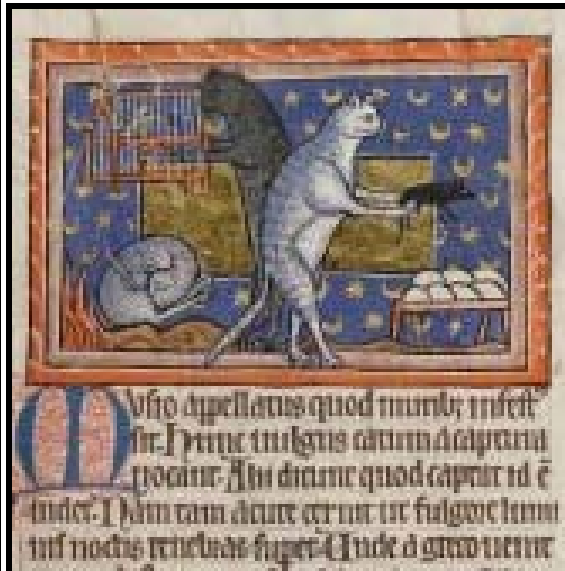 Musio appellatus quod muribꝫ infestꝰ
sit. Hunc uulgus catum a captura
uocant. Alii dicunt quod captat id ē
uidet. Nam tam acute cernit ut fulgore lumi
nis noctis tenebras suꝑet. Unde a greco uenit